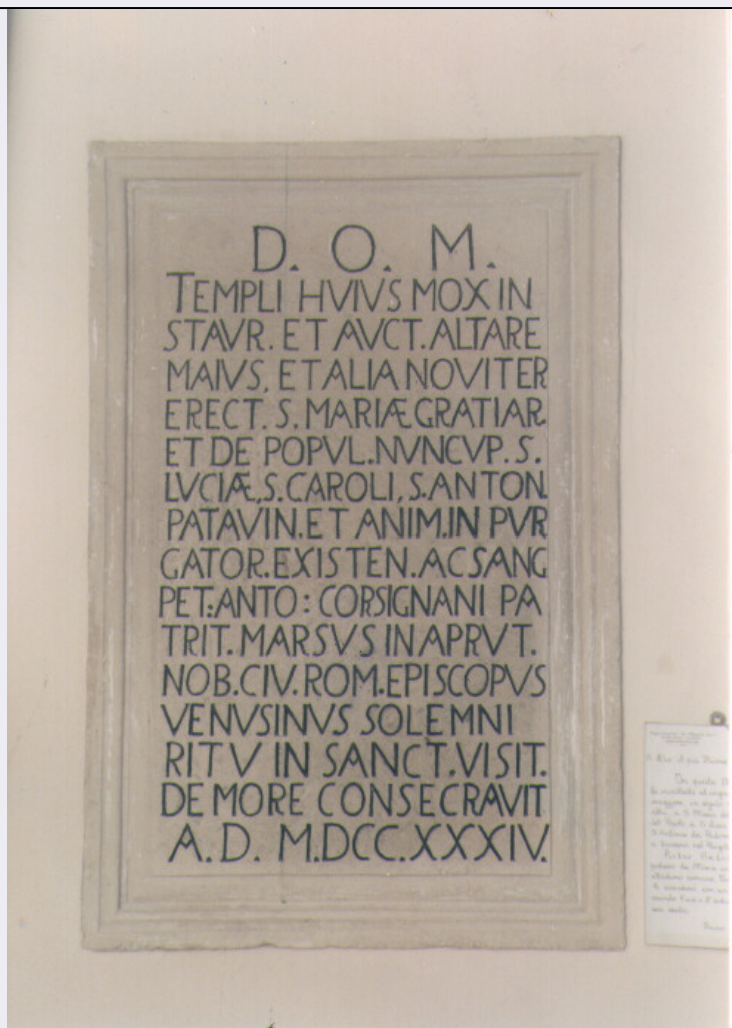 D. O. M.
TEMPLI HVIVS MOX IN
STAVR. ET AVCT. ALTARE
MAIVS, ET ALIA NOVITER
ERECT. S. MARIÆ GRATIAR.
ET DE POPVL. NVNCVP. S.
LVCIÆ, S. CAROLI, S. ANTON.
PATAVIN. ET ANIM. IN PVR
GATOR. EXISTEN. AC SANG
PET: ANTO: CORSIGNANI PA
TRIT. MARSVS IN APRVT.
NOB. CIV. ROM. EPISCOPVS
VENVSINVS SOLEMNI
RITV IN SANCT. VISIT.
DE MORE CONSECRAVIT
A. D. M.DCC.XXXIV.